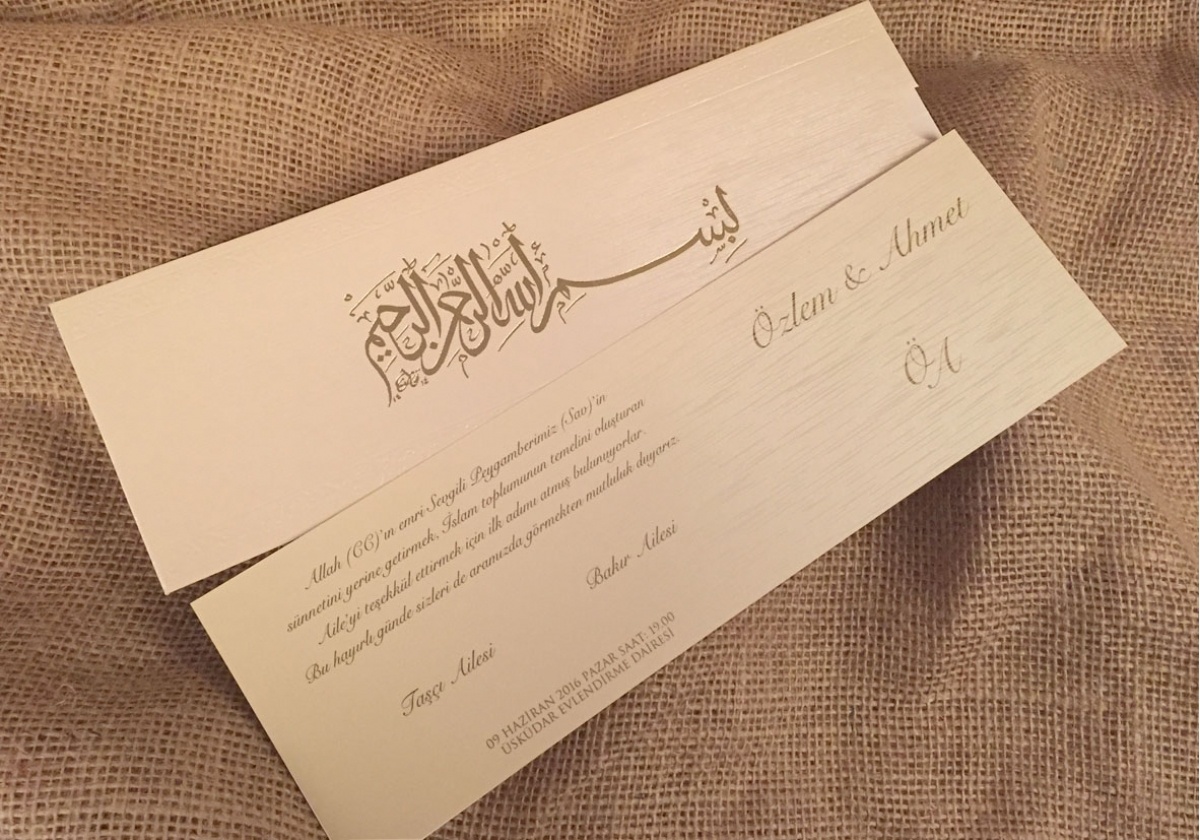 بِسْمِ اللهِ الرَّحْمٰنِ الرَّحِيْمِ
Özlem & Ahmet
ÖA
Allah (CC)'ın emri Sevgili Peygamberimiz (Sav)'in
sünnetini yerine getirmek, İslam toplumunun temelini oluşturan
Aile'yi teşekkül ettirmek için ilk adımı atmış bulunuyorlar.
Bu hayırlı günde sizleri de aramızda görmekten mutluluk duyarız.
Taşçı Ailesi
Bakır Ailesi
09 HAZİRAN 2016 PAZAR SAAT: 19.00
ÜSKÜDAR EVLENDİRME DAİRESİ